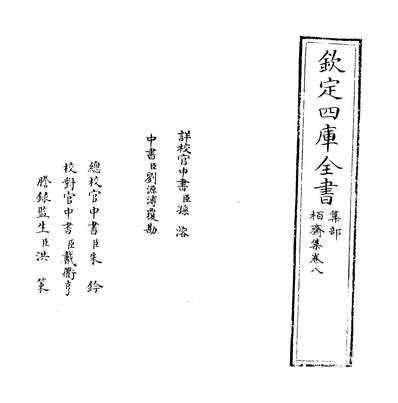 欽定四庫全書
集部
栢齋集卷八
詳校官中書臣孫溶
中書臣劉源溥覆勘
總校官中書臣朱鈐
校對官中書臣戴衢亨
謄錄監生臣洪策